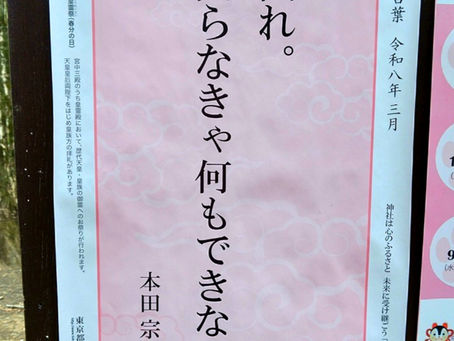 言葉 令和八年三月
神社は心のふるさと 未来に受け継ごう
れ。
らなきゃ何もできな
本田 宗
皇霊祭(春分の日)
宮中三殿のうち皇霊殿において、歴代天皇・皇族の御霊へのお祭りが行われます。
天皇皇后両陛下をはじめ皇族方の拝礼があります。
東京都
9
(水